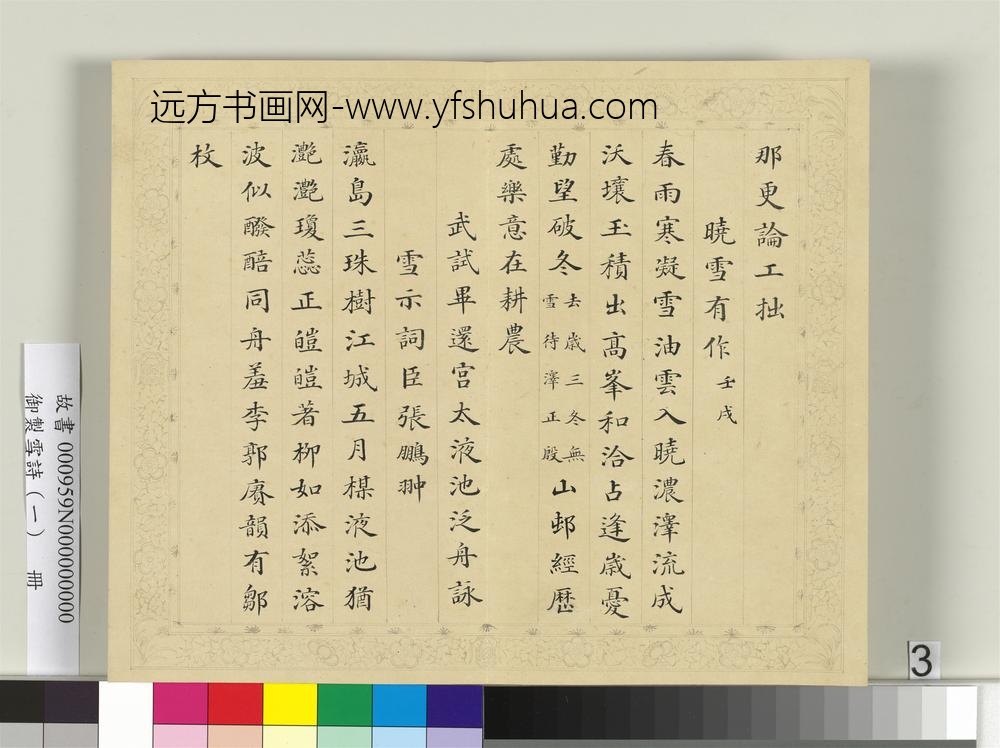 远方书画网-www.yfshuhua.com
那更論工拙
曉雪有作 壬戌
春雨寒凝雪油雲入曉濃澤流成
沃壤玉積出髙峯和洽占逢歲憂
勤望破冬去歲三冬無雪待澤正殷山邨經歷
處樂意在耕農
武試畢還宫太液池泛舟詠
雪示詞臣張鵬翀
瀛島三珠樹江城五月楳液池猶
灔灔瓊蕊正皚皚著柳如添絮溶
波似醱醅同舟羞李郭賡韻有鄒
枚
故書 000959N000000000
御製雪詩(一) 冊
3